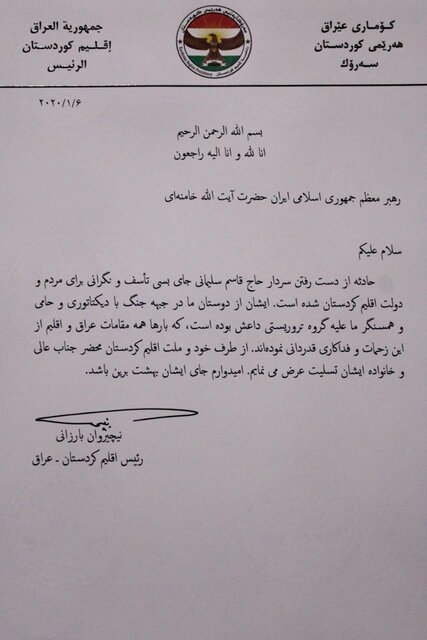 جمهورية العراق
إقليم كوردستان
الرئيس
كۆماری عێراق
هەرێمی کوردستان
سەرۆك
٢٠٢٠/١/٦
بسم الله الرحمن الرحیم
انا لله و انا الیه راجعون
رهبر معظم جمهوری اسلامی ایران حضرت آیت الله خامنه‌ای
سلام علیکم
حادثه از دست رفتن سردار حاج قاسم سلیمانی جای بسی تأسف و نگرانی برای مردم و
دولت اقلیم کردستان شده است. ایشان از دوستان ما در جبهه جنگ با دیکتاتوری و حامی
و همسنگر ما علیه گروه تروریستی داعش بوده است، که بارها همه مقامات عراق و اقلیم از
این زحمات و فداکاری قدردانی نموده‌اند. از طرف خود و ملت اقلیم کردستان محضر جناب عالی
و خانواده ایشان تسلیت عرض می نمایم. امیدوارم جای ایشان بهشت برین باشد.
نیچیروان بارزانی
رئیس اقلیم کردستان ـ عراق